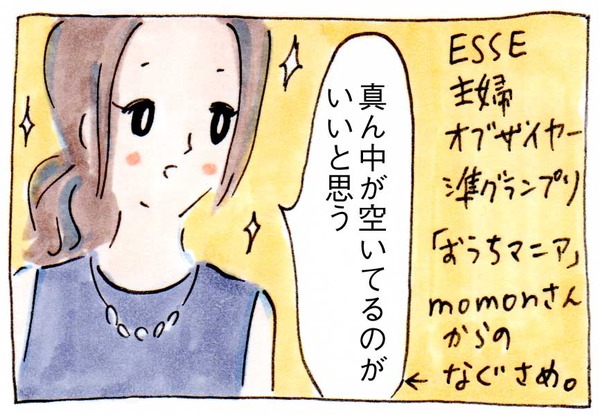 ESSE
主婦
オブザイヤー
準グランプリ
「おうちマニア」
momonさん
からの
← なぐさめ。
真ん中が空いてるのが
いいと思う